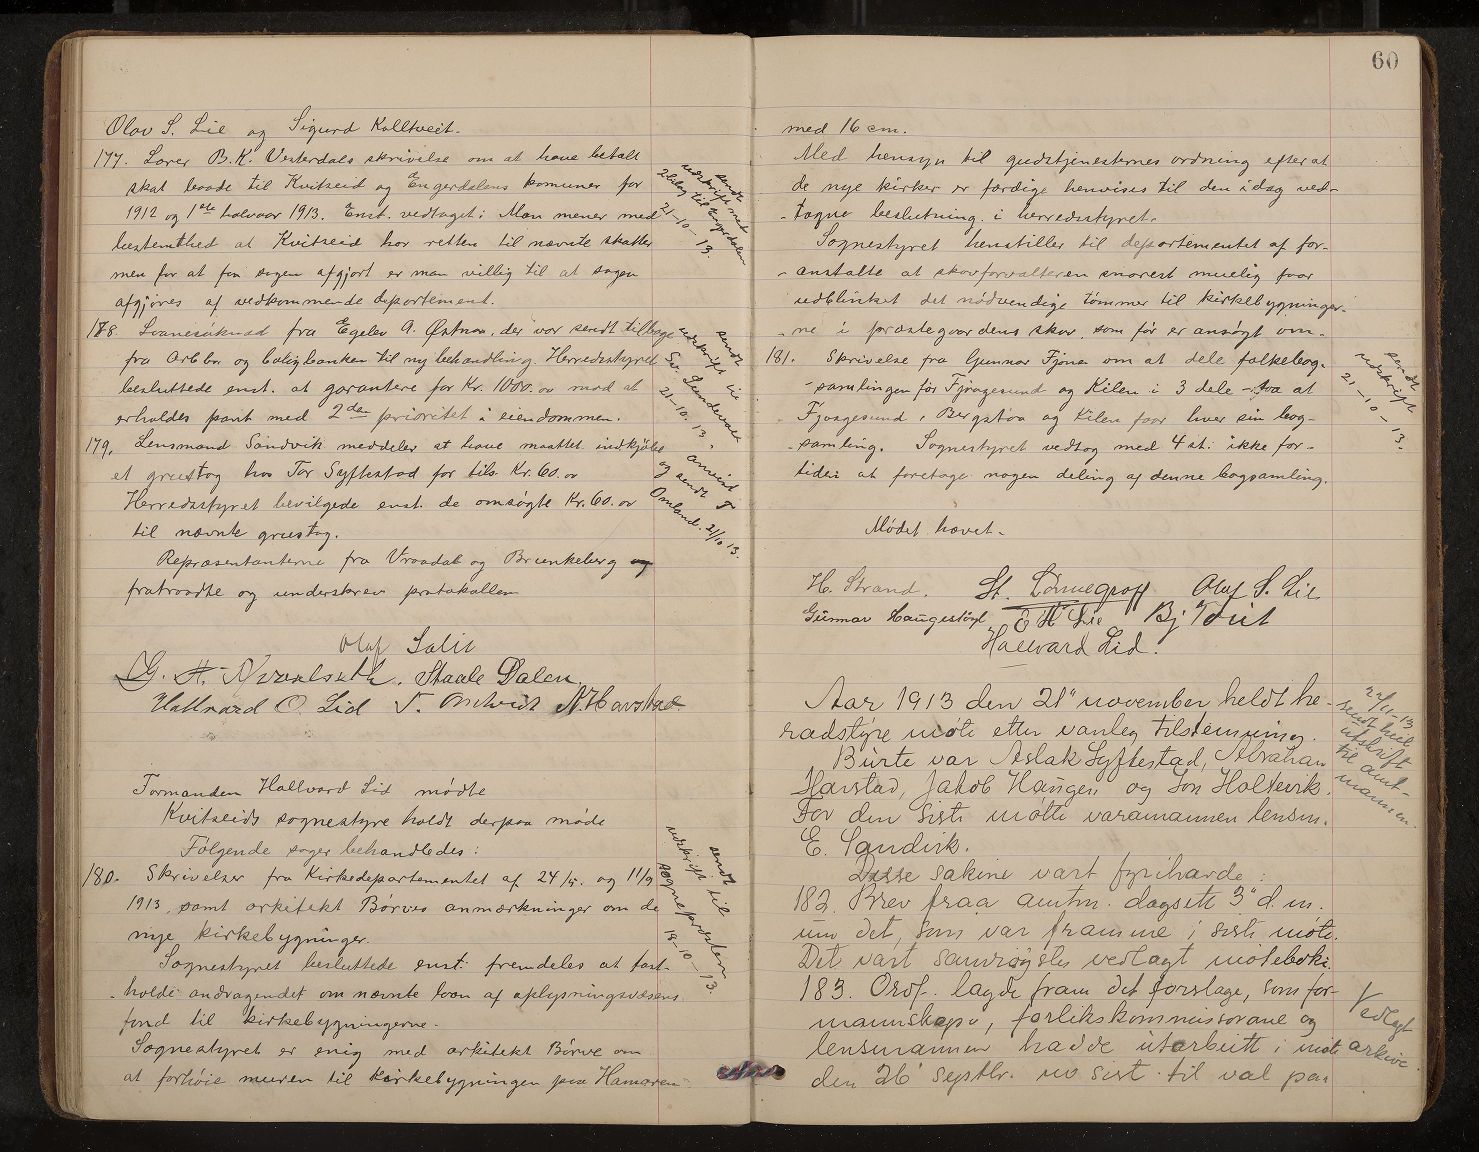 Olav S. Lie og Sigurd Kolltveit.
177. Lærer B.K. Vesterdals skrivelse om at have betalt
skat baade til Kvitseid og Engerdalens komuner for
1912 og 1ste halvaar 1913. Enst. vedtaget: Man mener med
bestemthed at Kvitseid har retten til nævnte skatter
men for at faa sagen afgjort er man villig til at sagen
afgjøres af vedkommende departement.
sendt
udskrift med
2 bilag til Engerdalen
21-10-13.
178 Laanesøknad fra Egelev A. Østnes, der var sendt tilbage
fra Arbbr. og boligbanken til ny behandling. Herredsstyret
besluttede enst. at garantere for Kr. 1000.00 mod at
erholdes pant med 2den prioritet i eiendommen.
sendt
udskrift
21-10-13.
179. Lensmand Sandvik meddeler at have maattet indkjøbe
et grustag hos Tor Syftestad for tils. Kr. 60.00
Herredsstyret bevilgede enst. de omsøgte Kr. 60.00
til nævnte grustag.
anvist
og sendt T
Omland. 21/10 13.
Repræsentanterne fra Vraadal og Brunkeberg og
fratraadte og underskrev protokollen
Olaf Salit
Staale Dalen.
Hallvard O. Lid A. Havstad.
Formanden Hallvard Lid mødte
Kvitseids sognestyre holdt derpaa møde
Følgende sager behandledes:
180. Skrivelser fra Kirkedepartementet af 24/5. og 11/9
1913, samt arkitekt Børves anmærkninger om de
nye kirkebygninger.
Sognestyret besluttede enst: fremdeles at fast-
holde andragendet om nævnte laan af oplysningsvæsens
fond til kirkebygningerne.
Sognestyret er enig med arkitekt Børve om
at forhøie muren til kirkebygningen paa Hamaren
sendt
udskrift til
sognepræsten
19-10-13.
60
med 16 cm.
Med hensyn til gudstjenesternes ordning efter at
de nye kirker er færdige henvises til den idag ved-
tagne beslutning i herredsstyret.
Sognestyret henstiller til departementet af for-
anstalte at skovforvalteren snarest muelig faar
udblinket det nødvendige tømmer til kirkebygninger-
ne i præstegaardens skov, som før er ansøgt om.
181. Skrivelse fra Gunnar Fjone om at dele folkebog-
samlingen for Fjaagesund og Kilen i 3 dele - saa at
Fjaagesund, Bergstøa og Kilen faar hver sin bog-
samling. Sognestyret vedtog med 4 st. ikke for-
tiden at foretage nogen deling af denne bogsamling.
sendt
udskrift
21-10-13.
Mødet hævet.
H. Strand. St. Lönnegraff Olaf S. Lie
Gunnar Haugestøyl E H Lie Bj Tveit
Hallvard Lid.
Aar 1913 den 21" november heldt he-
radstyre møte etter vanleg tilstemning.
Burte var Aslak Syftestad, Abraham
Havstad, Jakob Haugen og Jon Holtevik.
For den siste møtte varamannen lensm.
E. Sandvik.
Disse sakine vart fyrihavde:
22/11-13
sendt heil
utskrift
til amt-
mannen.
182. Brev fraa amtm. dagsett 3" d. m.
um det, som var framme i siste møte.
Det vart samrøystes vedlagt møteboki.
183. Ordf. lagde fram det forslage, som for-
mannskape, forlikskommissorane og
lensmannen hadde utarbeitt i møte
den 26' septbr. no sist til val paa
Vedlagt
arkive